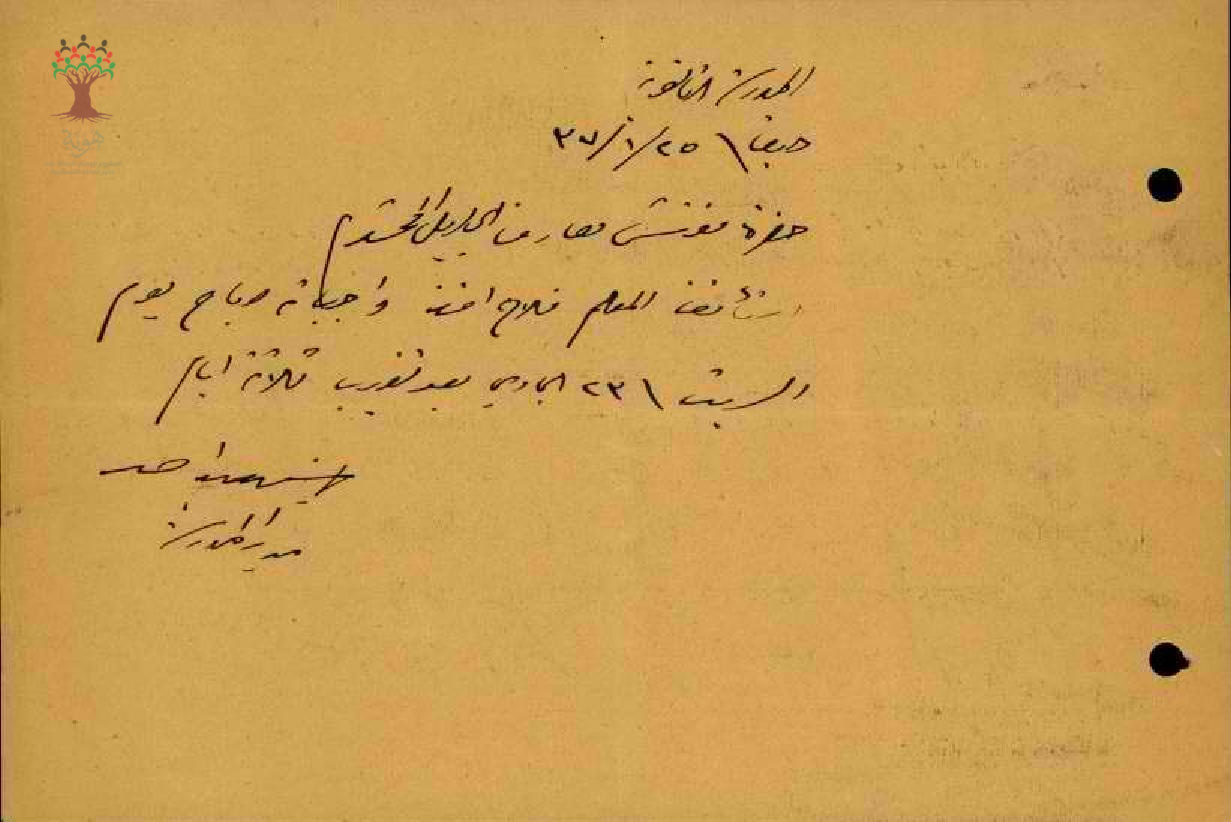 هوية
المدرسة الثانوية
حيفا \ ٢٥/١/٣٧
حضرة مفتش معارف الجليل المحترم
استأنف المعلم فلاح افندي واجباته صباح يوم
السبت \ ٢٣ الجاري بعد تغيب ثلاثة ايام
احمد
مدير المدرسة